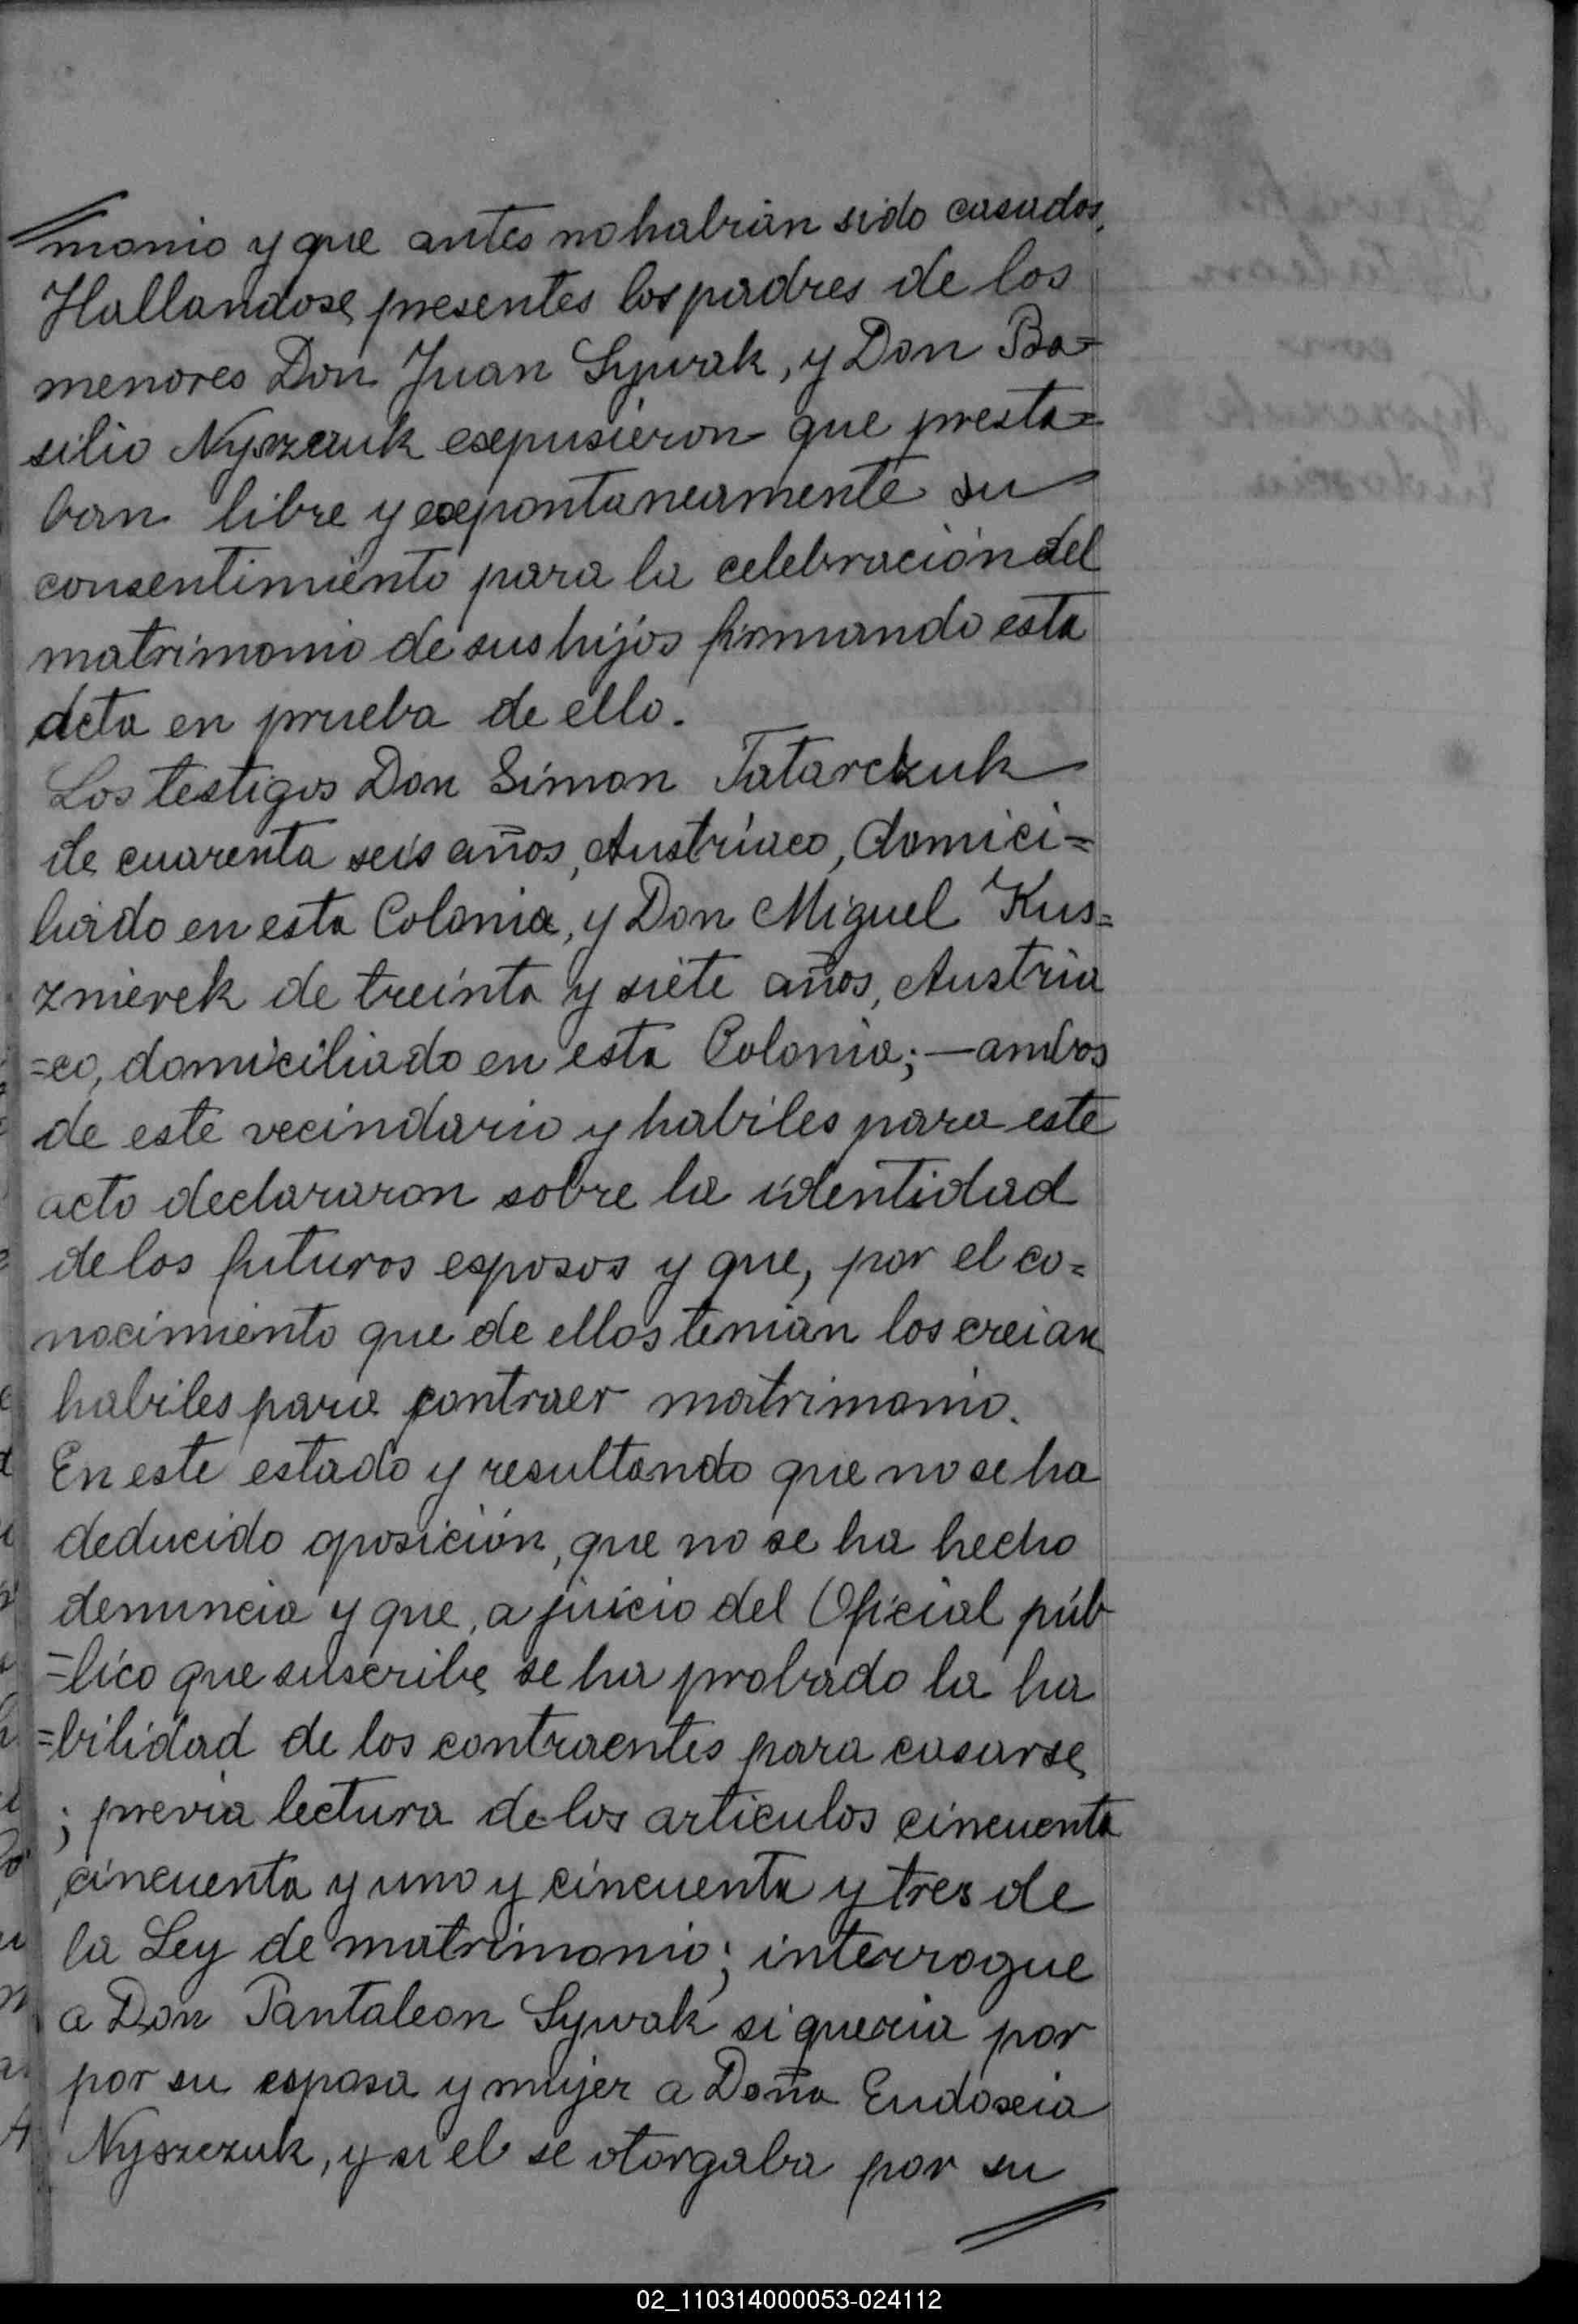 monio y que antes no habian sido casados.
Hallandose presentes los padres de los
menores Don Juan Sywak, y Don Ba=
silio Nyszczuk exepusieron que presta=
ban libre y exepontaneamente su
consentimiento para la celebración del
matrimonio de sus hijos firmando esta
acta en prueba de ello.
Los testigos Don Simon Tatarczuk
de cuarenta seis años, Austríaco, domici=
liado en esta Colonia, y Don Miguel Kus=
znierek de treinta y siete años, Austria
=co, domiciliado en esta Colonia;—ambos
de este vecindario y habiles para este
acto declararon sobre la identidad
de los futuros esposos y que, por el co=
nocimiento que de ellos tenian los creian
habiles para contraer matrimonio.
En este estado y resultando que no se ha
deducido oposición, que no se ha hecho
denuncia y que, a juicio del Oficial púb
=lico que suscribe, se ha probado la ha
=bilidad de los contraentes para casarse,
; previa lectura de los articulos cincuenta
,cincuenta y uno y cincuenta y tres de
la Ley de matrimonio; interrogue
a Don Pantaleon Sywak si queria por
por su esposa y mujer a Doña Eudoxcia
Nyszczuk, y si el se otorgaba por su
02_110314000053-024112